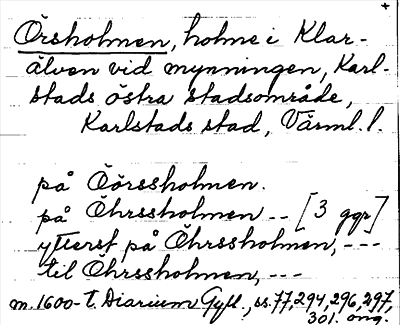 +
Örsholmen, holme i Klar-
älven vid mynningen, Karl-
stads östra stadsområde,
Karlstads stad, Värml. l.
på Öörssholmen.
på Öhrssholmen -- [3 ggr]
ytterst på Öhrssholmen, ---
til Öhrssholmen, ---
m. 1600-t. Diarium Gyll., ss. 77, 294, 296, 297,
301. orig.